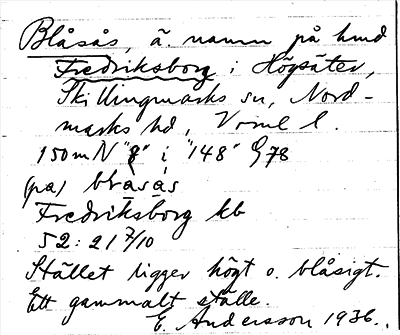 Blåsås, ä. namn på hmd
Fredriksborg i Högsäter,
Skillingmarks sn, Nord-
marks hd, Värml l.
150m N "8" i "148" G78
(på) blåsås
Fredriksborg kb
52:21 7/10
Stället ligger högt o. blåsigt.
Ett gammalt ställe.
E. Andersson 1936.